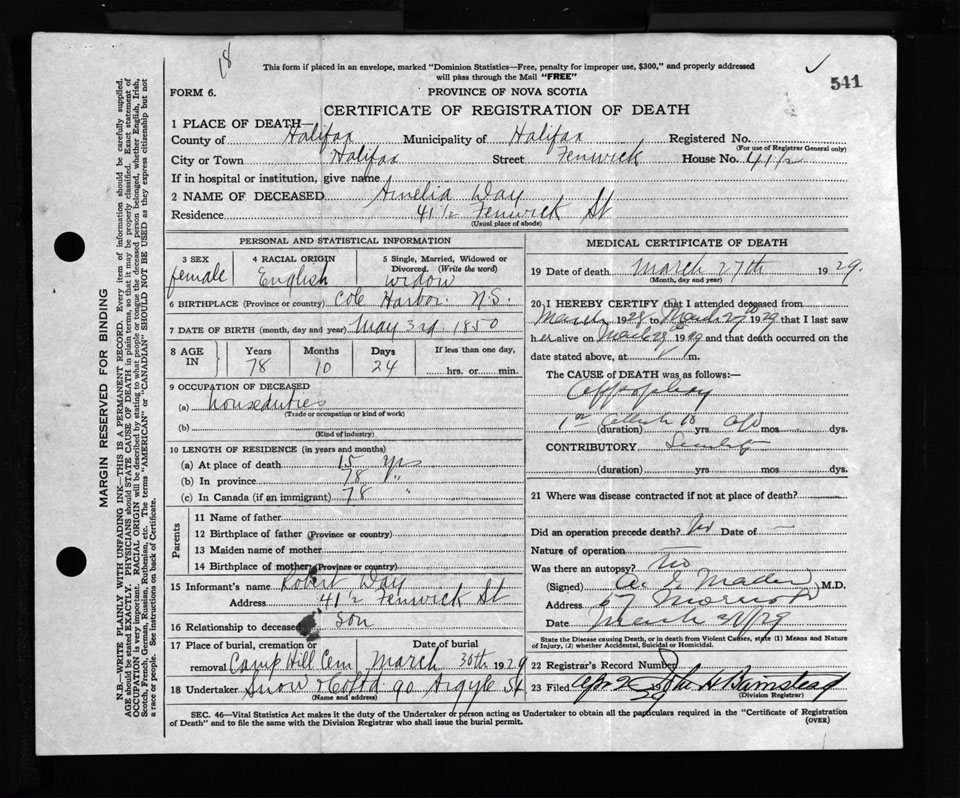 18
This form if placed in an envelope, marked "Dominion Statistics—Free, penalty for improper use, $300," and properly addressed
will pass through the Mail "FREE"
✓
541
FORM 6.
PROVINCE OF NOVA SCOTIA
CERTIFICATE OF REGISTRATION OF DEATH
1 PLACE OF DEATH—
County of Halifax Municipality of Halifax Registered No.
(For use of Registrar General only)
City or Town Halifax Street Fenwick House No. 41 1/2
If in hospital or institution, give name
2 NAME OF DECEASED Amelia Day
Residence 41 1/2 Fenwick St
(Usual place of abode)
PERSONAL AND STATISTICAL INFORMATION
3 SEX female
4 RACIAL ORIGIN English
5 Single, Married, Widowed or
Divorced. (Write the word)
widow
6 BIRTHPLACE (Province or country) Cole Harbor. N.S.
7 DATE OF BIRTH (month, day and year) May 3rd 1850
8 AGE IN
Years Months Days
78 10 24
If less than one day,
hrs. or min.
9 OCCUPATION OF DECEASED
(a) houseduties
(Trade or occupation or kind of work)
(b)
(Kind of industry)
10 LENGTH OF RESIDENCE (in years and months)
(a) At place of death 15 yrs
(b) In province 78 "
(c) In Canada (if an immigrant) 78 "
Parents
11 Name of father
12 Birthplace of father (Province or country)
13 Maiden name of mother
14 Birthplace of mother (Province or country)
15 Informant's name Robert Day
Address 41 1/2 Fenwick St
16 Relationship to deceased son
17 Place of burial, cremation or
removal Camp Hill Cem
Date of burial
March 30th 1929
18 Undertaker Snow & Co Ltd 90 Argyle St
(Name and address)
MEDICAL CERTIFICATE OF DEATH
19 Date of death March 27th 1929.
(Month, day and year)
20 I HEREBY CERTIFY that I attended deceased from
March 1928 to March 27th 1929 that I last saw
her alive on 1929 and that death occurred on
date stated above, at m.
The CAUSE of DEATH was as follows:—
Appoplexy
1st
(duration) yrs mos dys.
CONTRIBUTORY
(duration) yrs mos dys.
21 Where was disease contracted if not at place of death?
Did an operation precede death? Date of —
Nature of operation
Was there an autopsy? No
(Signed) Mader M.D.
Address 67 Morris St
Date March 29
State the Disease causing Death, or in death from Violent Causes, state (1) Means and Nature
of Injury, (2) whether Accidental, Suicidal or Homicidal.
22 Registrar's Record Number
23 Filed Apr 2 1929 John H Barnstead
(Division Registrar)
SEC. 46—Vital Statistics Act makes it the duty of the Undertaker or person acting as Undertaker to obtain all the particulars required in the "Certificate of Registration
of Death" and to file the same with the Division Registrar who shall issue the burial permit. (OVER)
MARGIN RESERVED FOR BINDING
N.B.—WRITE PLAINLY WITH UNFADING INK—THIS IS A PERMANENT RECORD. Every item of information should be carefully supplied.
AGE should be stated EXACTLY. PHYSICIANS should STATE CAUSE OF DEATH in plain terms, so that it may be properly classified. Exact statement of
OCCUPATION is very important. RACIAL ORIGIN will be described by stating to what people or tongue the deceased person belonged, whether English, Irish,
Scotch, French, German, Russian, Ruthenian, etc. The terms "AMERICAN" or "CANADIAN" SHOULD NOT BE USED as they express citizenship but not
a race or people. See instructions on back of Certificate.